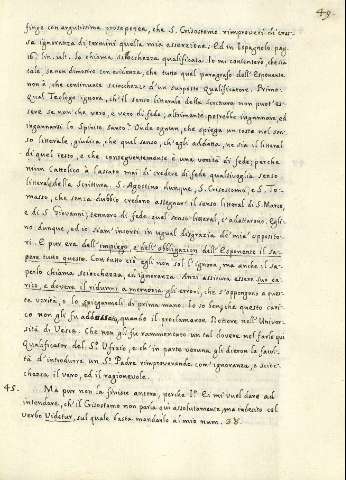 49.
finge con argutissima prosopopea, che S. Grisostomo rimproveri di cras-
sa ignoranza di termini quella mia asserzione. Ed in Espagnolo pag.
16. lin. ult. la chiama sciocchezza qualificata. Io mi contenterò, che sia
tale, se non dimostro con evidenza, che tutto quel paragrafo dell'Esponente
non è, che continuate sciocchezze d'un supposto Qualificatore. Prima:
Qual Teologo ignora, ch'il senso litterale della Scrittura non può es-
sere se non che vero, e vero di fede; altrimente potrebbe ingannare, ed
ingannarsi lo Spirito Santo? Onde ognun, che spiega un testo nel sen-
so litterale, giudica, che quel senso, ch'egli addatta, ne sia il litteral
di quel testo, e che conseguentemente è una verità di fede; perche
niun Cattolico à lasciato mai di credere di fede qualsivoglia senso
litterale della Scrittura. S. Agostino dunque, S. Grisostomo, e S. To-
masso, che senza dubbio credono assegnare il senso litteral di S. Marco,
e di S. Giovanni, tennero di fede quel senso litteral, ch'adattarono. Egli-
no dunque, ed io siam' incorsi in ugual disgrazia de' miei opposito-
ri. E pur era dall'impiego, e dell'obbligazion dell'Esponente il sa-
pere tutto questo. Con tutto ciò egli non sol l'ignora, ma anche il sa-
perlo chiama sciocchezza, ed ignoranza. Anzi assieme essere suo ca-
rico, e dovere il ridurmi a memoria gli errori, che s'oppongono a ques-
ta verità, o lo spiegarmeli di prima mano. Io so ben, che questo cari-
co non gli fu addossato, quando il proclamaron Dottore nell'Univer-
sità di Vesca. Che non gli fu rammentato un tal dovere nel farlo qui
Qualificator del S.º Ufizio, e ch'in parte veruna gli dieron la facul-
tà d'introdurre un S.º Padre rimproverando com'ignoranza, o scioc-
chezza il vero, ed il ragionevole.
45. Ma pur non la finisce ancora, perche I.º Ei mi vuol dare ad
intendere, ch'il Grisostomo non parla qui assolutamente, ma
verbo Videtur, sul quale basta mandarlo al mio num. 38.